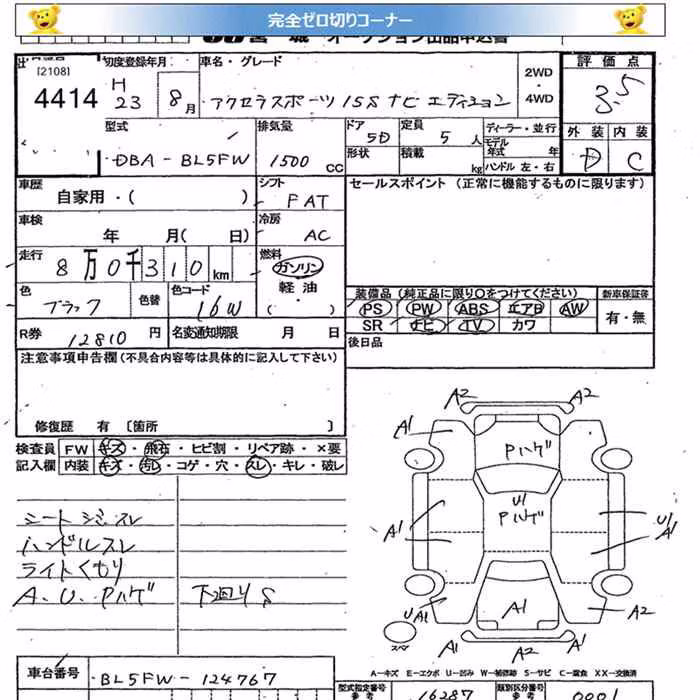 完全ゼロ切りコーナー
宮城 オークション出品申込書
[2108]
4414
初度登録年月 H23 8月
車名・グレード アクセラスポーツ 15S ナビ エディション
2WD・4WD
評価点 3.5
外装 内装
D C
型式 DBA-BL5FW
排気量 1500 CC
ドア 5D
形状
定員 5人
積載 kg
ディーラー・並行
モデル年式 年
ハンドル 左・右
車歴 自家用・( )
シフト FAT
セールスポイント (正常に機能するものに限ります)
車検 年 月( 日)
冷房 AC
走行 8万0千310km
燃料 ガソリン
軽油
( )
色 ブラック 色替
色コード 16W
装備品 (純正品に限り○をつけてください)
新車保証書
PS PW ABS エアB AW
有・無
SR ナビ TV カワ
R券 12810円
名変通知期限 月 日
後日品
注意事項申告欄 (不具合内容等は具体的に記入して下さい)
修復歴 有 〔箇所 〕
検査員 FW キズ・飛石・ヒビ割・リペア跡・×要
記入欄 内装 キズ・汚レ・コゲ・穴・スレ・キレ・破レ
シートシミスレ
ハンドルスレ
ライトくもり
A.U.Pハゲ 下廻りS
A2 A2
A1 Pハゲ
U1
Pハゲ
A1 U1
A1
UA1 A1 A2
スペア A1 A2 A1
A−キズ E−エクボ U−凹み W−補修跡 S−サビ C−腐食 XX−交換済
車台番号 BL5FW-124767
型式指定番号 参考 16287
類別区分番号 参考 0001